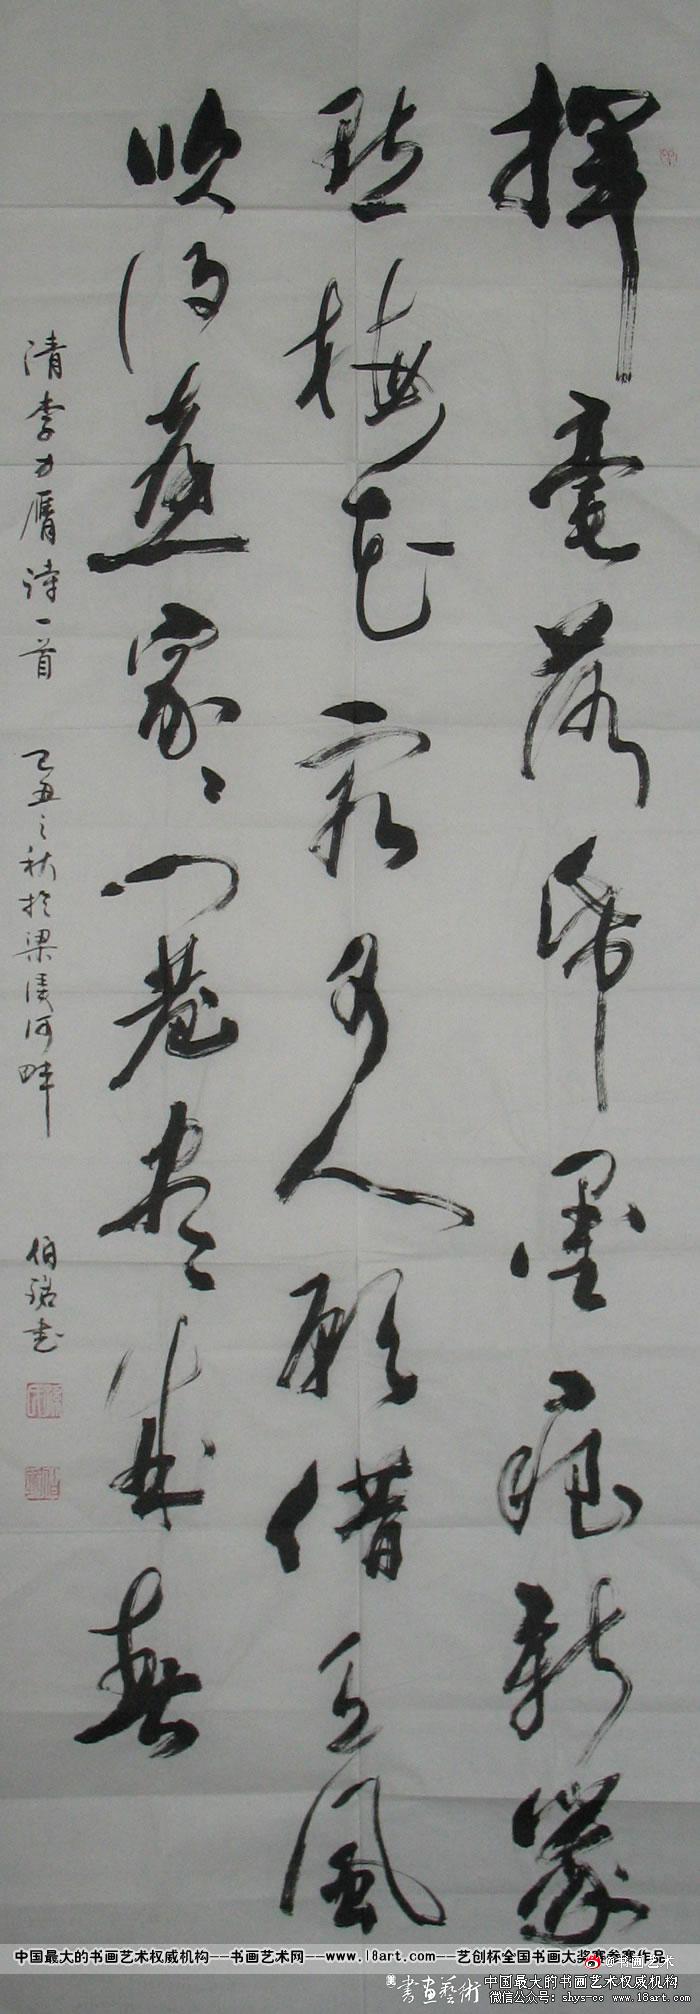 揮毫落紙墨痕新幾
點梅花最可人願借天風
吹得遠家家門巷盡成春
清李方膺诗一首 己丑之秋於梁溪河畔 伯铭书
中国最大的书画艺术权威机构---书画艺术网---www.18art.com---艺创杯全国书画大奖赛参赛作品
@书画艺术
書画藝術 中国最大的书画艺术权威机构
微信公众号: shys-cc www.18art.com